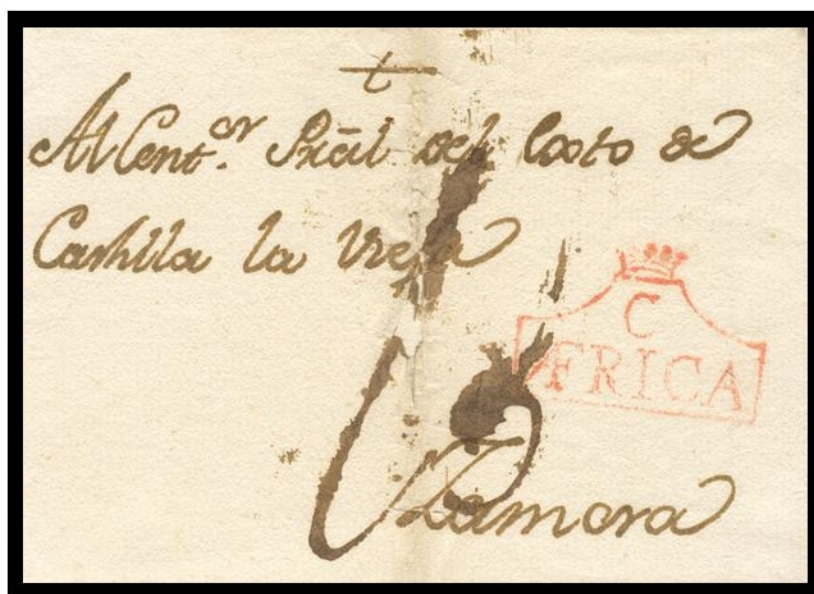 Al Cont.or Prãl del de
Castilla la Vieja
C
AFRICA
Zamora